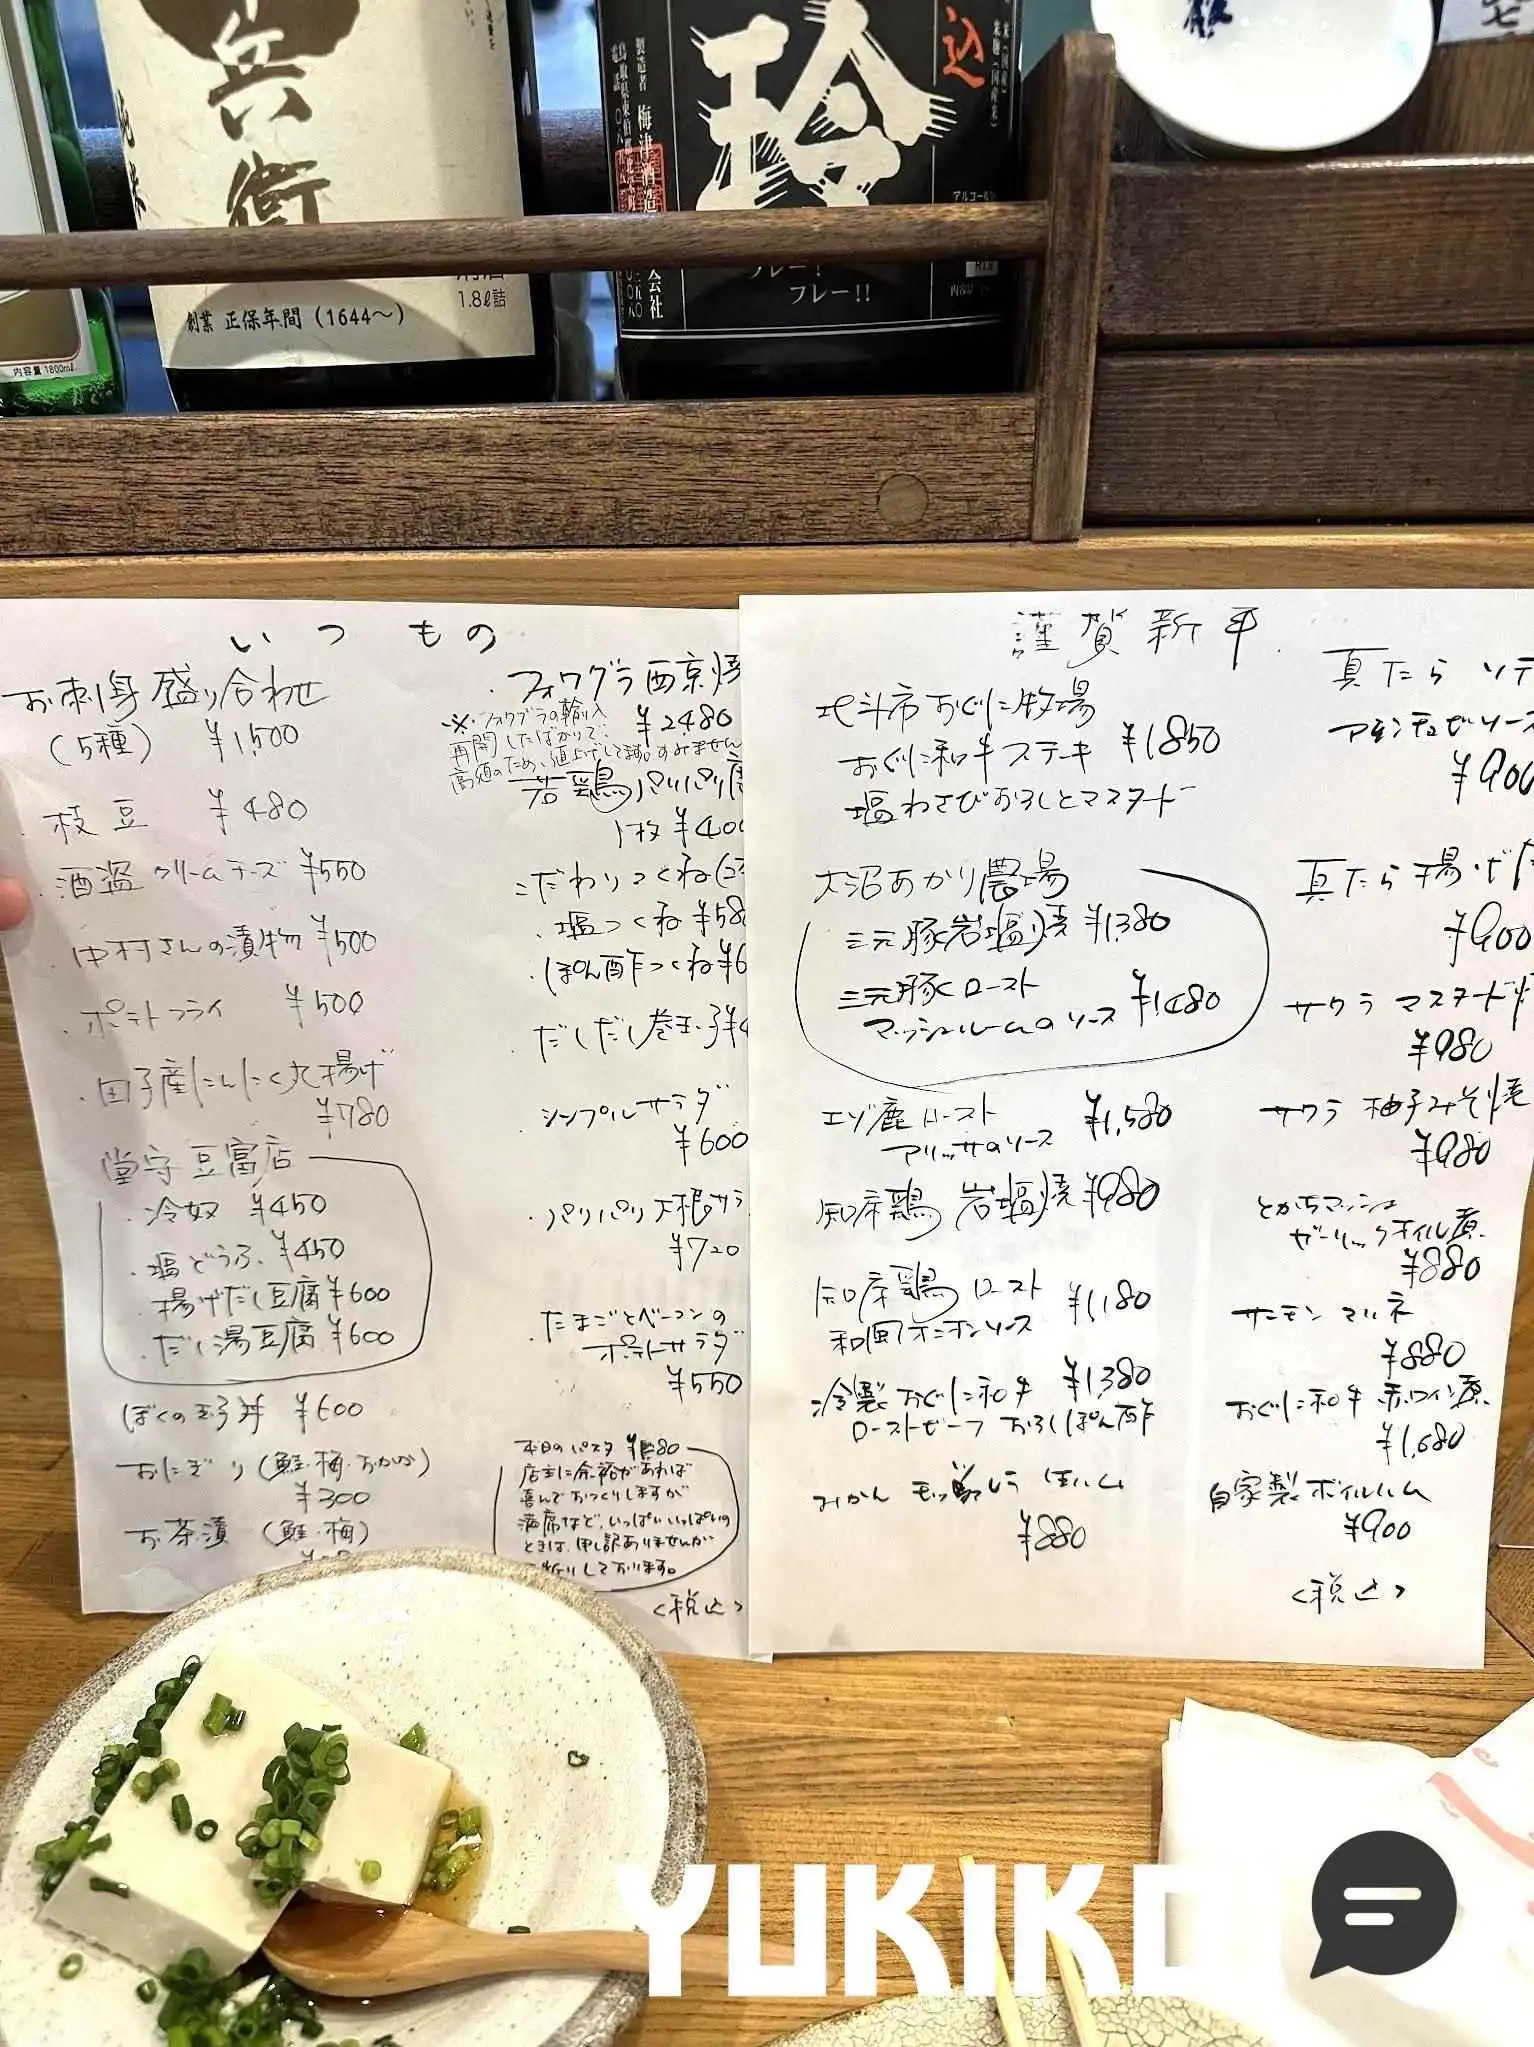 兵衛
純米
1.8ℓ詰
創業 正保年間(1644〜)
内容量 1800mℓ
込
製造者 梅津酒造
会社
フレー!
フレー!!
いつもの
お刺身盛り合わせ
(5種) ¥1,500
・枝豆 ¥480
・酒盗クリームチーズ ¥550
・中村さんの漬物 ¥500
・ポテトフライ ¥500
・田子産にんにく丸揚げ
¥780
堂守豆富店
・冷奴 ¥450
・塩どうふ ¥450
・揚げだし豆腐 ¥600
・だし湯豆腐 ¥600
ぼくの玉子丼 ¥600
おにぎり(鮭・梅・おかか)
¥300
お茶漬 (鮭・梅)
・フォワグラ西京焼
※フォワグラの輸入
再開したばかりで
高値のため、値上げしてます。すみません
¥2,480
若鶏パリパリ
1枚 ¥400
こだわりつくね
・塩つくね ¥58
・ぽん酢つくね ¥6
だしだし巻玉子 ¥4
シンプルサラダ
¥600
・パリパリ大根サラ
¥720
・たまごとベーコンの
ポテトサラダ
¥550
本日のパスタ
店主に余裕があれば
喜んでおつくりしますが
満席など、いっぱいいっぱいの
ときは、申し訳ありませんが
しております。
<税込>
謹賀新年
北斗市おぐに牧場
おぐに和牛ステーキ ¥1,850
塩わさびおろしとマスタード
大沼あかり農場
三元豚岩塩焼 ¥1,380
三元豚ロースト
マッシュルームのソース ¥1,480
エゾ鹿ロースト
アリッサのソース ¥1,580
知床鶏 岩塩焼 ¥980
知床鶏 ロースト
和風オニオンソース ¥1,180
冷製おぐに和牛 ¥1,380
ローストビーフ おろしぽん酢
みかん モッツァレラ 生ハム
¥880
真たら ソテ
アンチョビソース
¥900
真たら 揚げ
¥900
サワラ マスタード
¥980
サワラ 柚子みそ焼
¥980
とかちマッシュ
ガーリックオイル煮
¥880
サーモン マリネ
¥880
おぐに和牛 赤ワイン煮
¥1,680
自家製ボイルハム
¥900
<税込>
YUKIKO